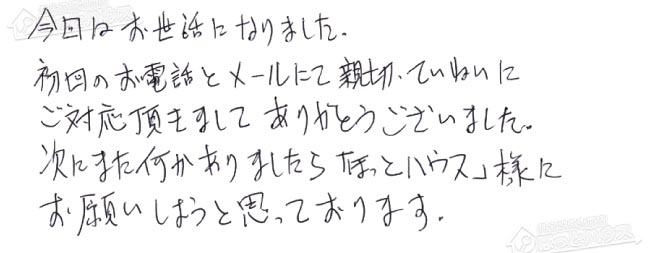 今回はお世話になりました.
初回のお電話とメールにて親切、ていねいに
ご対応頂きまして ありがとうございました。
次にまた何かありましたら「ほっとハウス」様に
お願いしようと思っております.
ほっとハウス